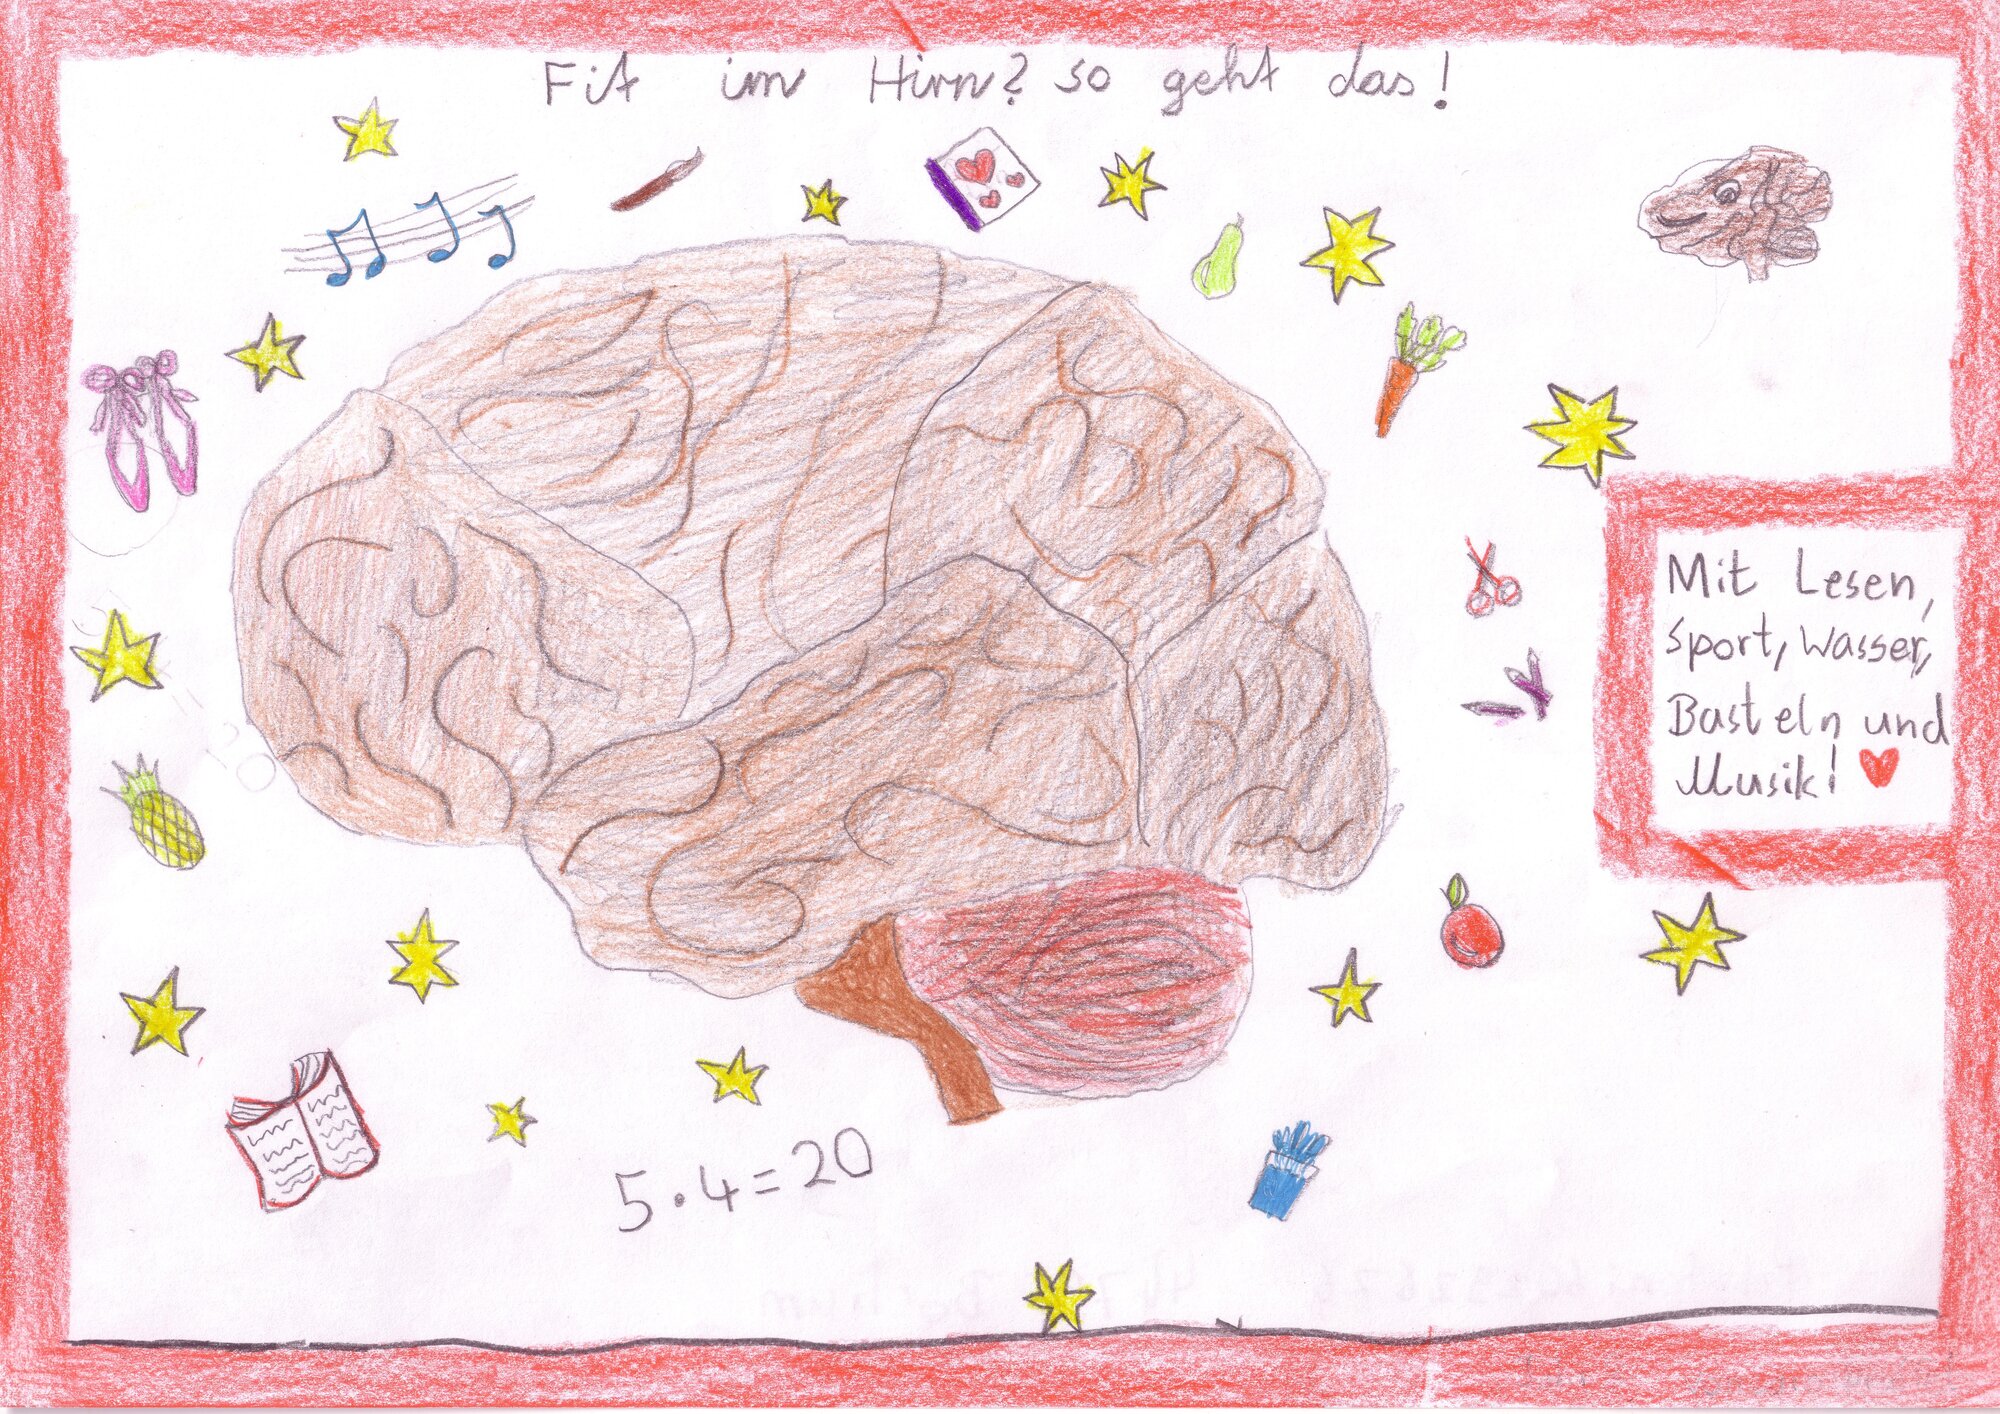 Fit im Hirn? so geht das!
Mit Lesen,
Sport, Wasser,
Basteln und
Musik!
5·4=20